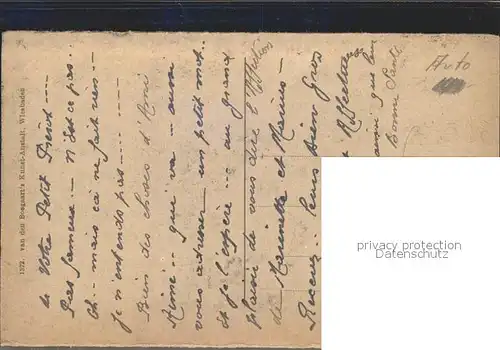 1572. van den Boogaart's Kunst-Anstalt, Wiesbaden
de Votre Petit Piérot ----
Pas fameux - N'Est ce pas..
Oh.. mais ça ne fait rien -
je n'entends pas - - - -
Bien des choses d'Ami
Aimé.. qui va - aussi
vous adresser un petit mot..
et je l'espère.. au grand
plaisir de vous dire l'Affection
de Mariette et Marius -
Recevez.. leurs bien Gros
et Affectueux
ainsi que leur
Bonne Santé
Auto
privacy protection
veikkos.com